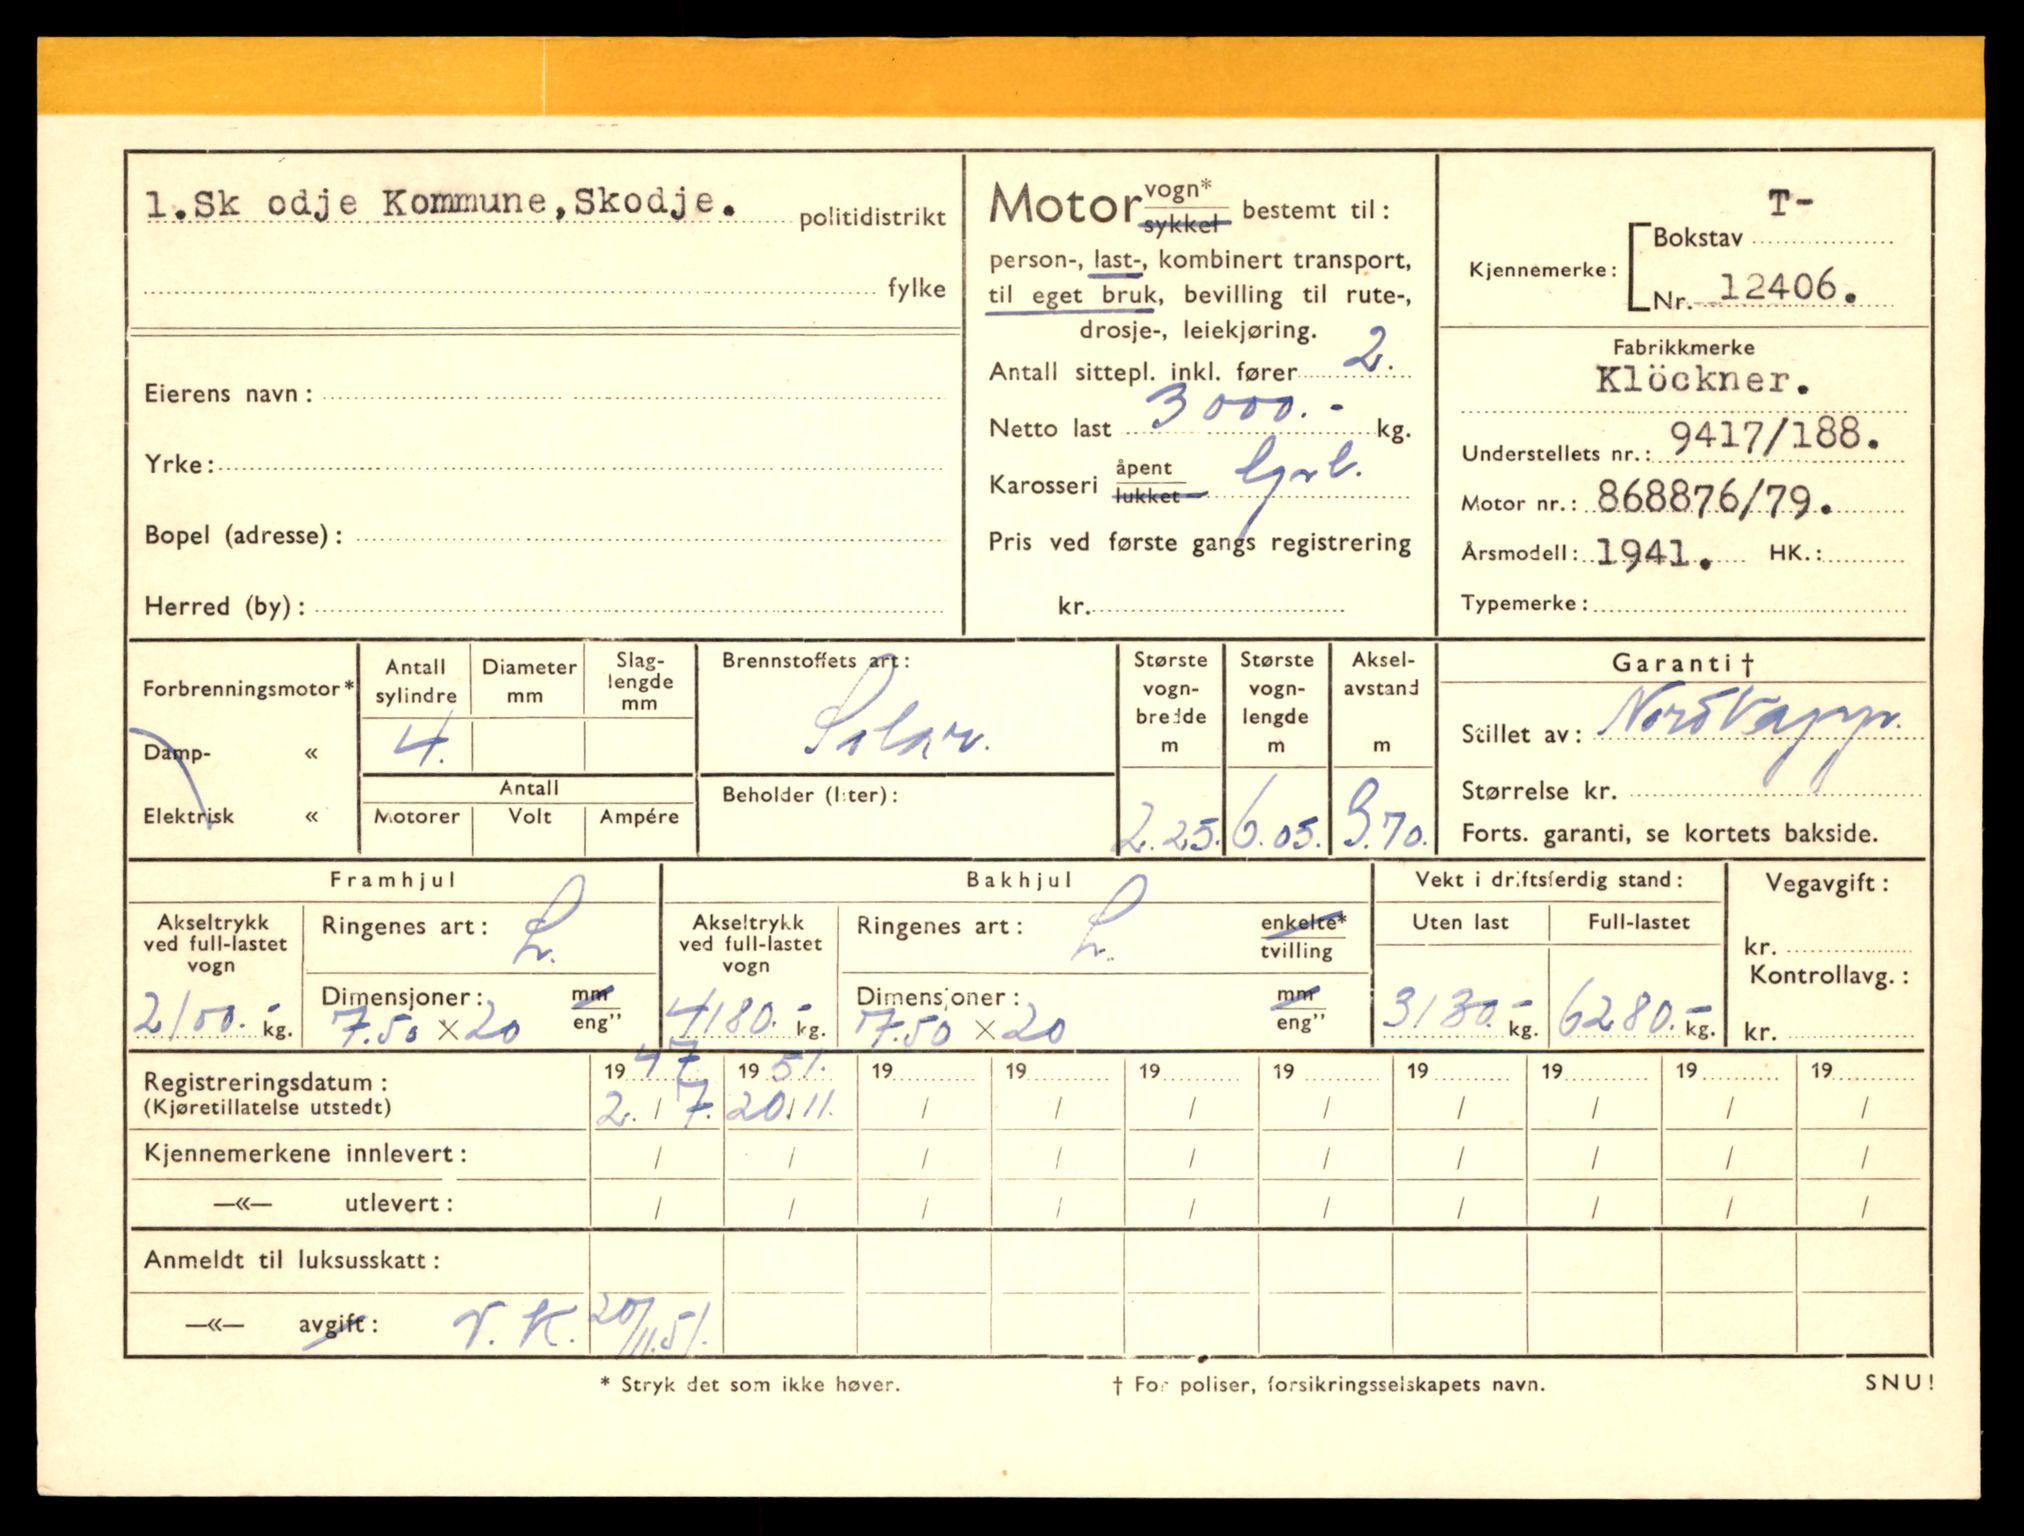 1.Sk odje Kommune,Skodje. politidistrikt
fylke
Eierens navn :
Yrke :
Bopel (adresse) :
Herred (by) :
Motor vogn* sykkel bestemt til :
person-, last-, kombinert transport,
til eget bruk, bevilling til rute-,
drosje-, leiekjøring.
Antall sittepl. inkl. fører 2.
Netto last 3000.- kg.
Karosseri åpent lukket
Pris ved første gangs registrering
kr.
T-
Kjennemerke : Bokstav
Nr. 12406.
Fabrikkmerke
Klöckner.
Understellets nr. : 9417/188.
Motor nr. : 868876/79.
Årsmodell : 1941. HK. :
Typemerke :
Forbrenningsmotor *
Damp- «
Elektrisk «
Antall sylindre
4.
Diameter mm
Slag-lengde mm
Antall
Motorer Volt Ampére
Brennstoffets art :
Solar.
Beholder (liter) :
Største vogn-bredde m
2.25.
Største vogn-lengde m
6.05.
Aksel-avstand m
3.70.
Garanti †
Stillet av :
Størrelse kr.
Forts. garanti, se kortets bakside.
Framhjul
Akseltrykk ved full-lastet vogn
2100.- kg.
Ringenes art : L.
Dimensjoner : mm eng”
7.50 × 20
Bakhjul
Akseltrykk ved full-lastet vogn
4180.- kg.
Ringenes art : L. enkelte* tvilling
Dimensjoner : mm eng”
7.50 × 20
Vekt i driftsferdig stand :
Uten last Full-lastet
3130.- kg. 6280.- kg.
Vegavgift :
kr.
Kontrollavg. :
kr.
Registreringsdatum : 1947 1951. 19 19 19 19 19 19 19 19
(Kjøretillatelse utstedt) 2. / 7. 20/11. / / / / / / / /
Kjennemerkene innlevert : / / / / / / / / / /
—«— utlevert : / / / / / / / / / /
Anmeldt til luksusskatt :
—«— avgift : V. K. 20/11.51.
* Stryk det som ikke høver. † For poliser, forsikringsselskapets navn. SNU!